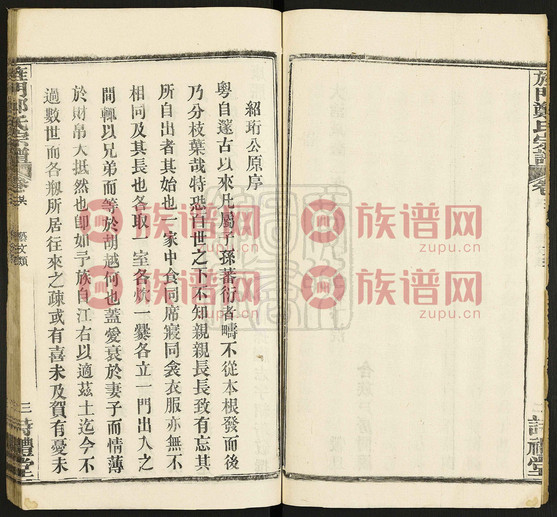 紹珩公原序
粵自邃古以來凡屬子孫蕃衍者疇不從本根發而後
乃分枝葉哉特恐百世之下不知親親長長致有忘其
所自出者其始也一家中食同席寢同衾衣服亦無不
相同及其長也各取一室各炊一爨各立一門出入之
間輒以兄弟而等於胡越何也蓋愛衰於妻子而情薄
於財帛大抵然也卽如予族自江右以適茲土迄今不
過數世而各刱所居往來之疎或有喜未及賀有憂未
旌門鄭氏宗譜
卷
藝文類
三
詩禮堂
旌門鄭氏宗譜
卷
三
詩禮堂
族谱网
zupu.cn
族谱网
zupu.cn
族谱网
zupu.cn
族谱网
zupu.cn